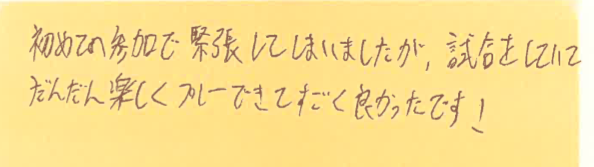 初めての参加で緊張してしまいましたが、試合をしていて
だんだん楽しくプレーできてすごく良かったです!